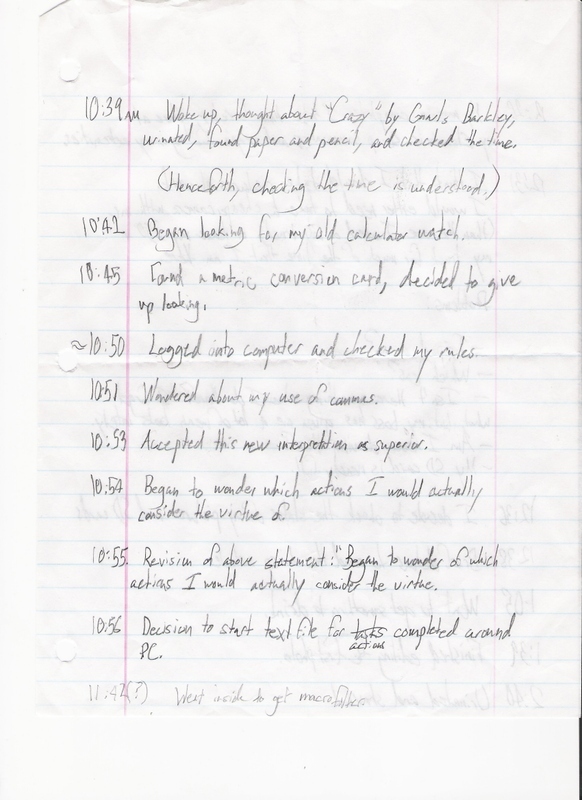 10:39 AM Woke up, thought about "Crazy" by Gnarls Barkley,
urinated, found paper and pencil, and checked the time.
(Henceforth, checking the time is understood.)
10:42 Began looking for my old calculator watch.
10:45 Found a metric conversion card, decided to give
up looking.
≈10:50 Logged into computer and checked my rules.
10:51 Wondered about my use of commas.
10:53 Accepted this new interpretation as superior.
10:54 Began to wonder which actions I would actually
consider the virtue of.
10:55. Revision of above statement: "Began to wonder of which
actions I would actually consider the virtue.
10:56 Decision to start text file for tasks completed around
actions
PC.
11:42(?) Went inside to get macrofilter.